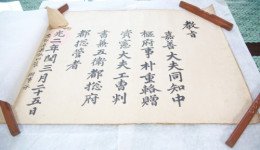 教旨
嘉善大夫同知中
樞府事朴重贈
資憲大夫工曹判
書兼五衛都摠府
都摠管者
光二年閏三月二十五日